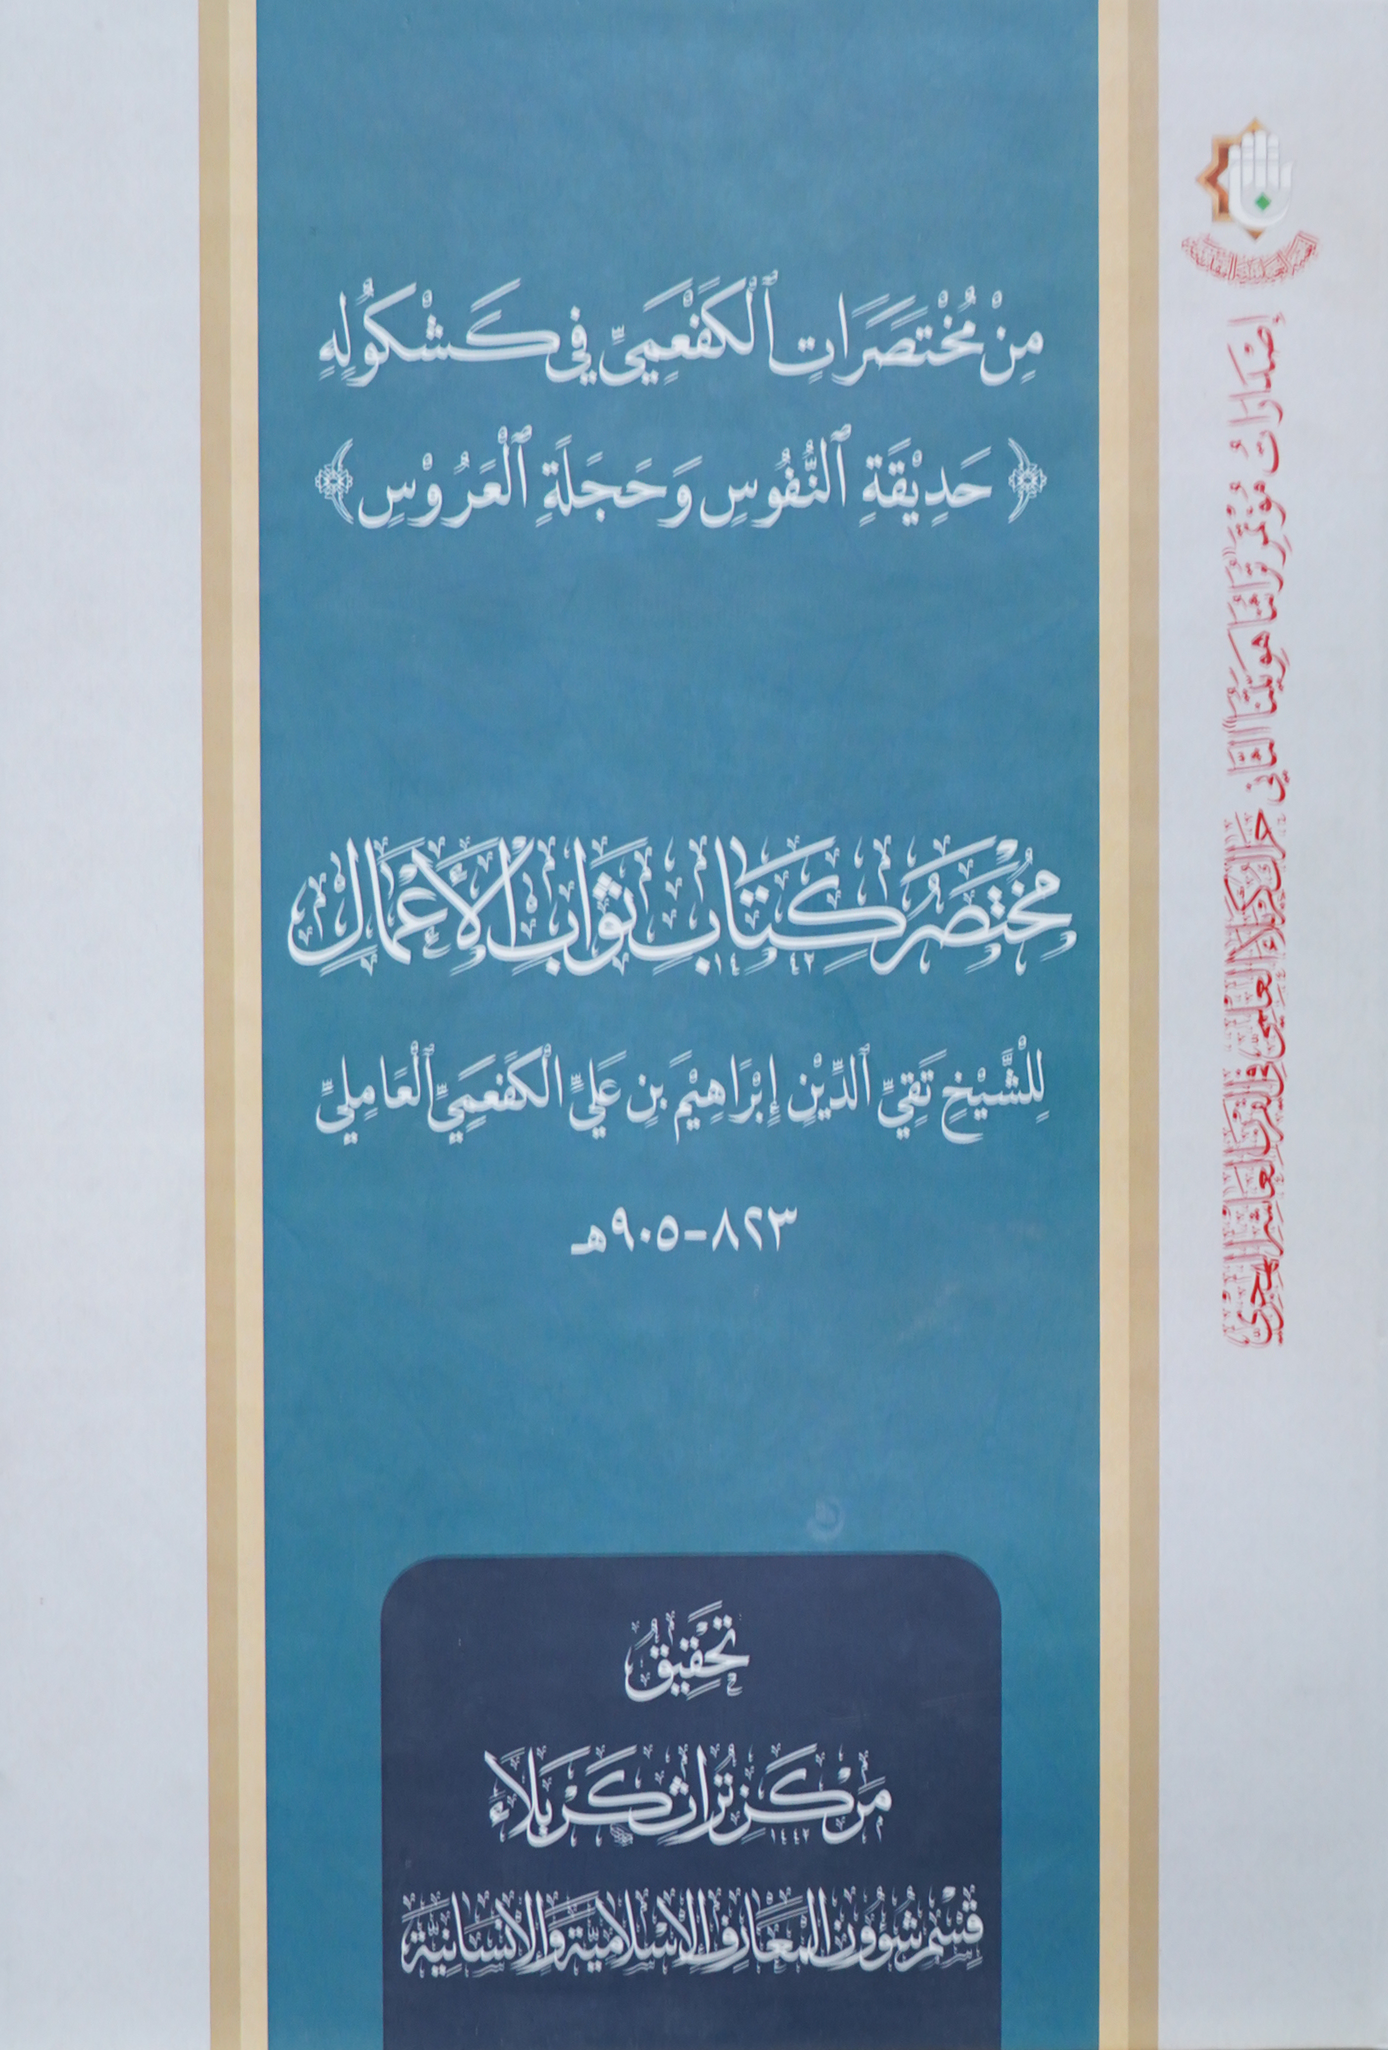 مِنْ مُخْتَصَرَاتِ ٱلْكَفْعَمِيِّ فِي كَشْكُوْلِهِ
﴿حَدِيْقَةِ ٱلنُّفُوسِ وَحَجَلَةِ ٱلْعَرُوْسِ﴾
مُخْتَصَرُ كِتَابِ ثَوَابِ الْأَعْمَالِ
لِلشَّيْخِ تَقِيِّ ٱلدِّيْنِ إِبْرَاهِيْمَ بْنِ عَلِيٍّ الْكَفْعَمِيِّ ٱلْعَامِلِيِّ
٨٢٣-٩٠٥هـ
تَحْقِيقُ
مَرْكَزِ تُرَاثِ كَرْبَلَاءَ
قِسْمِ شُؤُونِ الْمَعَارِفِ الْإِسْلَامِيَّةِ وَالْإِنْسَانِيَّةِ
إِصْدَارَاتُ مُؤْتَمَرِ تُرَاثُنَا هُوِيَّتُنَا الثَّانِي حَرَاكُ كَرْبَلَاءَ الْعِلْمِيُّ فِي الْقَرْنِ الْعَاشِرِ الْهِجْرِيِّ